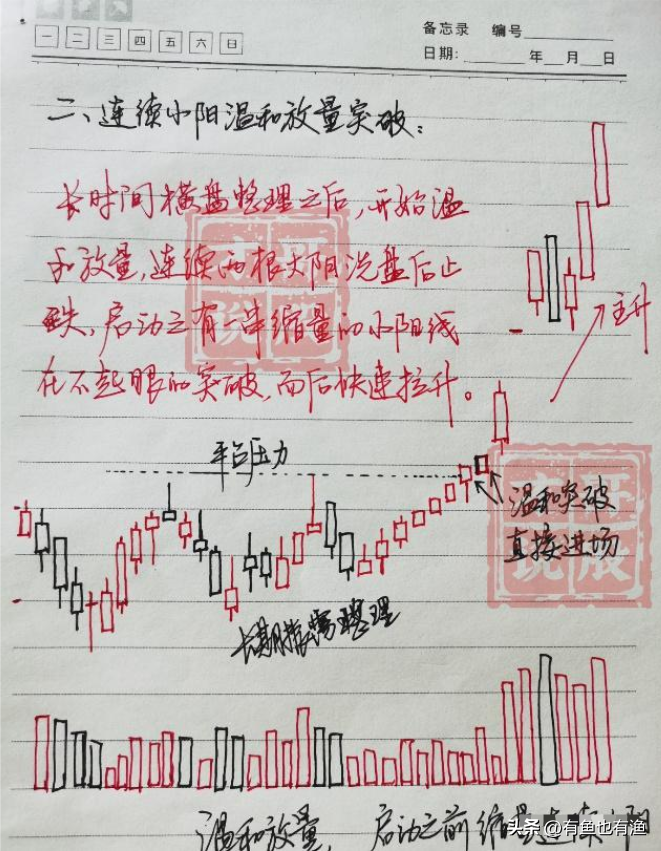 一 二 三 四 五 六 日
备忘录 编号
日期: 年 月 日
二、连续小阳温和放量突破:
长时间横盘整理之后,开始温
和放量,连续两根大阳洗盘后止
跌,启动之有一串缩量的小阳线
在不起眼的突破,而后快速拉升。
主升
平台压力
温和突破
直接进场
长期横盘整理
温和放量, 启动之前缩量连续小阳
头条 @有鱼也有渔